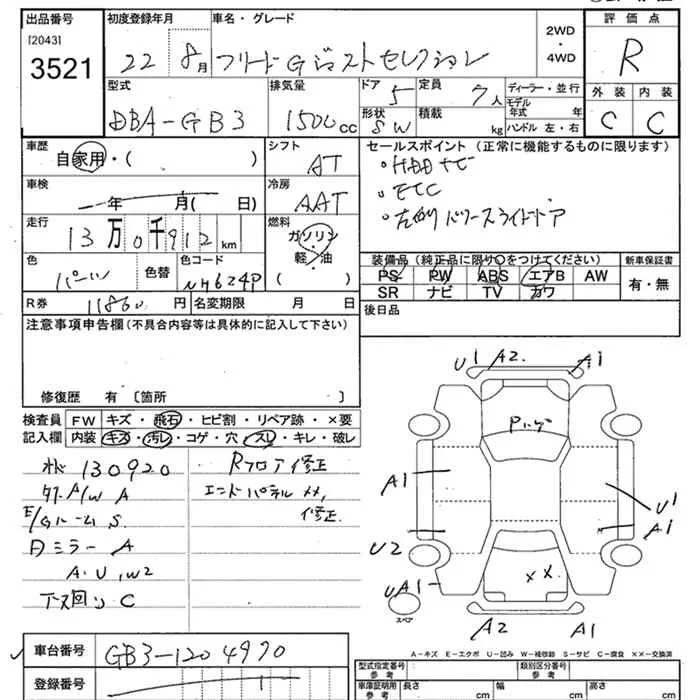 出品番号 初度登録年月 車名・グレード 評価点
[2043]
3521
22 8月 フリード Gジャストセレクション
2WD
・
4WD
R
型式 排気量 ドア 定員 ディーラー・並行 外装 内装
DBA-GB3 1500cc 5 7人
モデル年式 年
形状 積載
SW kg ハンドル 左・右
C C
車歴 シフト セールスポイント (正常に機能するものに限ります)
自家用・( ) AT
・HDDナビ
・ETC
・左側パワースライドドア
車検 冷房
年 月( 日) AAT
走行 燃料
13万0千912km
ガソリン
軽・油
( )
装備品(純正品に限り○をつけてください) 新車保証書
PS PW ABS エアB AW
SR ナビ TV カワ
有・無
色 色替 色コード
パール NH624P
R券 11860円 名変期限 月 日
後日品
注意事項申告欄(不具合内容等は具体的に記入して下さい)
修復歴 有 〔箇所
検査員
記入欄
FW キズ・飛石・ヒビ割・リペア跡・×要
内装 キズ・汚レ・コゲ・穴・スレ・キレ・破レ
130920
Rフロア修正
A/W A
エンドパネル
修正
S
ミラー A
A・U,W2
下回り C
U1 A2 A1
A1
U1
A1
U2
UA1
スペア
××
A2 A1
A-キズ E-エクボ U-凹み W-補修跡 S-サビ C-腐食 ××-交換済
車台番号 GB3-1204970
登録番号
型式指定番号 参考 類別区分番号 参考
車庫証明用 参考 長さ cm 幅 cm 高さ cm